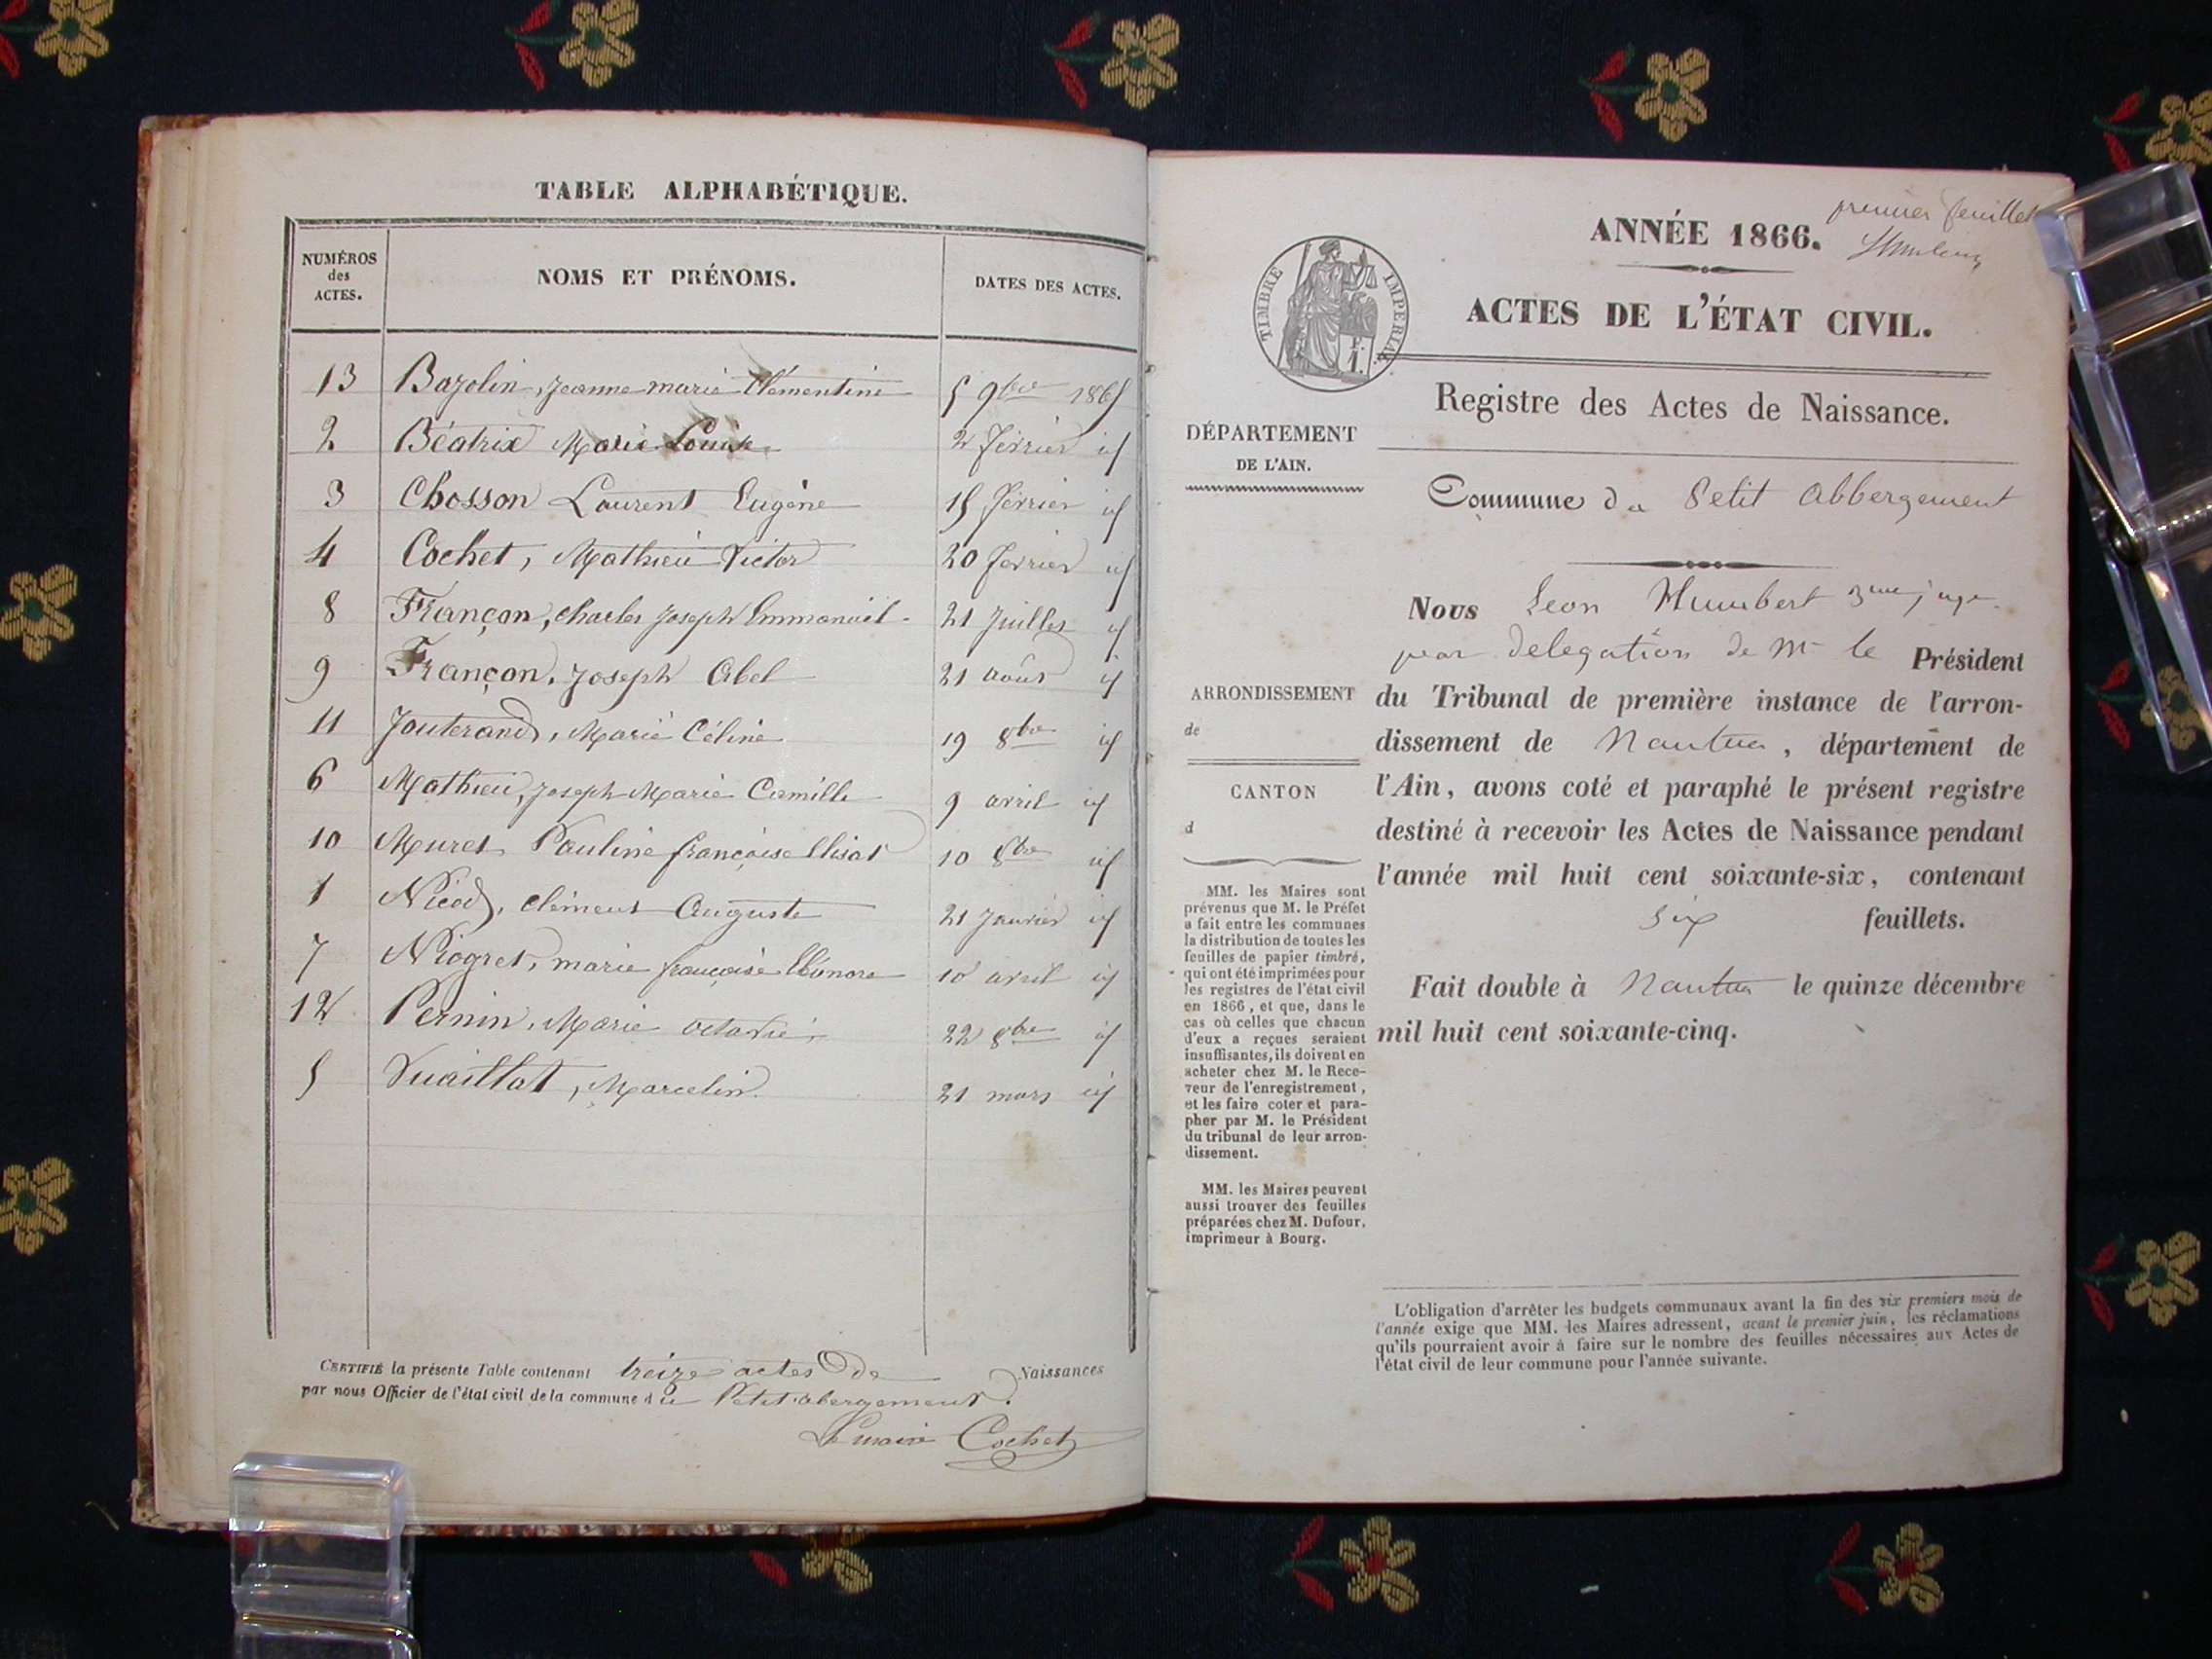 TABLE ALPHABÉTIQUE.
NUMÉROS des ACTES. NOMS ET PRÉNOMS. DATES DES ACTES.
13 Bazolin, Jeanne marie Clémentine 5 9bre 1865
2 Béatrix Marie Louise 2 février id
3 Chosson Laurent Eugène 15 février id
4 Cochet, Mathieu Victor 20 février id
8 Françon, Charles Joseph Emmanuel 21 Juillet id
9 Françon, Joseph Abel 21 août id
11 Jouterand, Marie Céline 19 8bre id
6 Mathieu, Joseph Marie Camille 9 avril id
10 Muret Pauline françoise Elisa 10 8bre id
1 Nicod, Clément Auguste 21 Janvier id
7 Niogret, marie françoise Eléonore 10 avril id
12 Pernin, Marie octavie 22 8bre id
5 Vuaillat, Marcelin 21 mars id
CERTIFIÉ la présente Table contenant treize actes de Naissances
par nous Officier de l'état civil de la commune du Petit abergement.
Le maire Cochet
premier feuillet
ANNÉE 1866.
TIMBRE IMPERIAL
ACTES DE L'ÉTAT CIVIL.
Registre des Actes de Naissance.
DÉPARTEMENT
DE L'AIN.
Commune du Petit Abbergement
Nous Leon Humbert 3me juge
par delegation de Mr le Président
du Tribunal de première instance de l'arron-
dissement de Nantua, département de
l'Ain, avons coté et paraphé le présent registre
destiné à recevoir les Actes de Naissance pendant
l'année mil huit cent soixante-six, contenant
six feuillets.
Fait double à Nantua le quinze décembre
mil huit cent soixante-cinq.
ARRONDISSEMENT
de
CANTON
d
MM. les Maires sont
prévenus que M. le Préfet
a fait entre les communes
la distribution de toutes les
feuilles de papier timbré,
qui ont été imprimées pour
les registres de l'état civil
en 1866, et que, dans le
cas où celles que chacun
d'eux a reçues seraient
insuffisantes, ils doivent en
acheter chez M. le Rece-
veur de l'enregistrement,
et les faire coter et para-
pher par M. le Président
du tribunal de leur arron-
dissement.
MM. les Maires peuvent
aussi trouver des feuilles
préparées chez M. Dufour,
imprimeur à Bourg.
L'obligation d'arrêter les budgets communaux avant la fin des six premiers mois de
l'année exige que MM. les Maires adressent, avant le premier juin, les réclamations
qu'ils pourraient avoir à faire sur le nombre des feuilles nécessaires aux Actes de
l'état civil de leur commune pour l'année suivante.